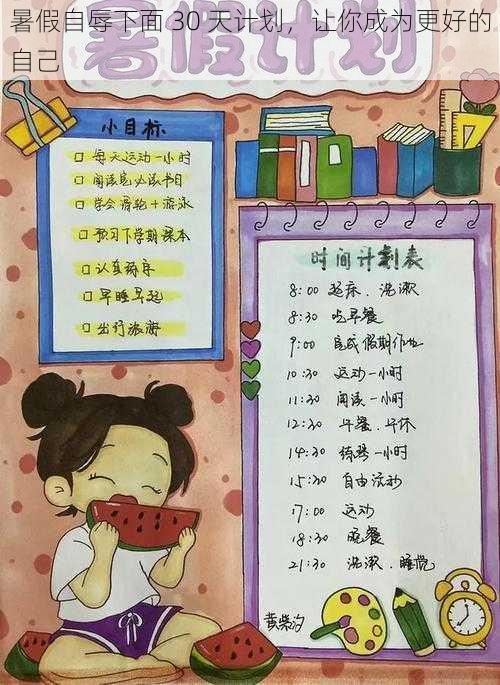 暑假自辱下面 30 天计划，让你成为更好的
自己
暑假计划
小目标
每天运动一小时
阅读完必读书目
学会滑轮+游泳
预习下学期课本
认真练字
早睡早起
出行旅游
时间计划表
8:00 起床、洗漱
8:30 吃早餐
9:00 完成假期作业
10:30 运动一小时
11:30 阅读一小时
12:30 午餐、午休
14:30 练琴一小时
15:30 自由活动
17:00 运动
18:30 晚餐
21:30 洗漱、睡觉